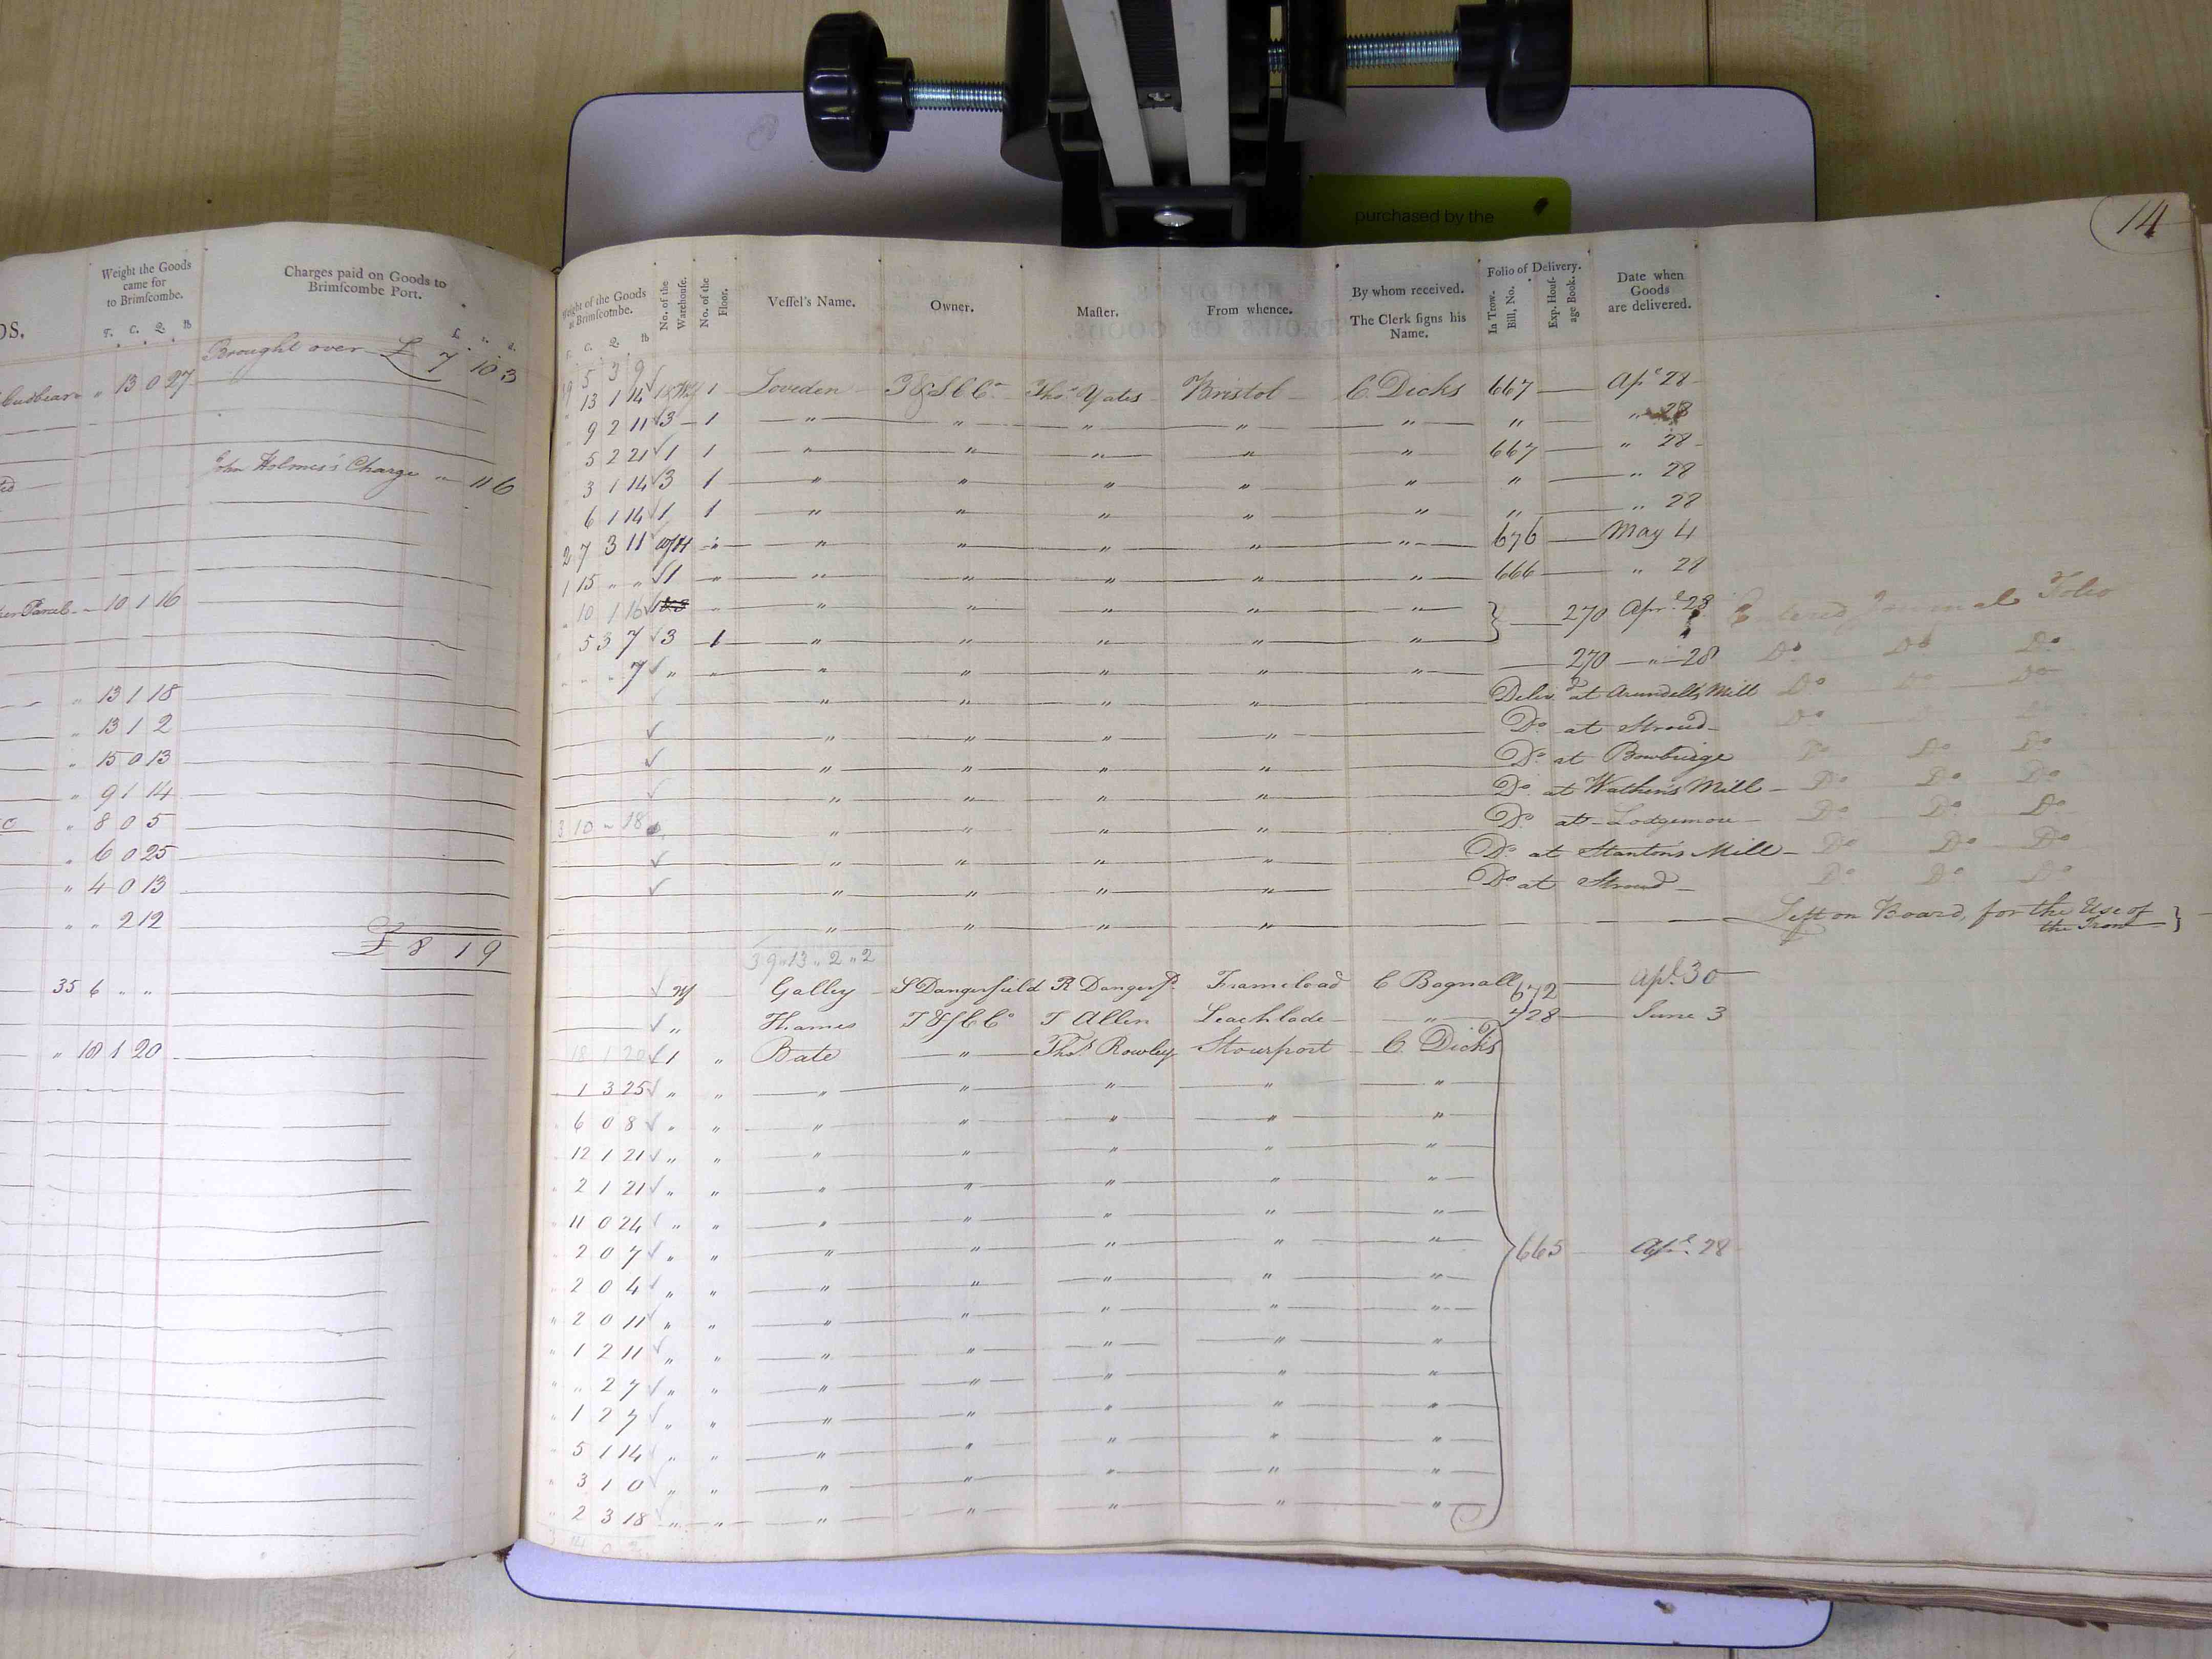 purchased by the
14
DS.
Weight the Goods came for to Brimſcombe.
T. C. Q. lb
Charges paid on Goods to Brimſcombe Port.
£. s. d.
Brought over £ 7 10 3
Cudbear " 13 0 27
John Holmes's Charge " 11 6
Parcel " 10 1 16
" 13 1 18
" 13 1 2
" 15 0 13
" 9 1 14
" 8 0 5
" 6 0 25
" 4 0 13
" " 2 12
£ 8 1 9
35 6 " "
" 18 1 20
Weight of the Goods at Brimſcombe.
C. Q. lb
No. of the Warehouse.
No. of the Floor.
Veſſel's Name.
Owner.
Maſter.
From whence.
By whom received.
The Clerk ſigns his Name.
Folio of Delivery.
In Trow. Bill, No.
Exp. Houſage Book.
Date when Goods are delivered.
19 5 3 9
" 13 1 14 1 Loveden T & S C Co. Thos. Yates Bristol C. Dicks 667 Apl 28
" 9 2 11 3 1 " " " " " " " 28
5 2 21 1 1 " " " " " 667 " 28
3 1 14 3 1 " " " " " " " 28
6 1 14 1 1 " " " " " " " 28
2 7 3 11 " " " " " " 676 May 4
1 15 " " 1 " " " " " " 666 " 28
" 10 1 16 " " " " " " 270 Aprl. 28 Entered Journal Folio
" 5 3 7 3 1 " " " " "
" " " 7 " " " " " " " 270 " 28 Do Do Do
" " " " Delivd at Arundells Mill Do Do Do
" " " " Do. at Stroud Do
" " " " Do. at Bowbridge Do Do Do
" " " " Do. at Wathens Mill Do Do Do
3 10 " 18 " " " " Do. at Lodgemore Do Do Do
" " " " Do. at Stantons Mill Do Do Do
" " " " Do. at Stroud Do Do Do
" " " " Left on Board, for the Use of the Trow
39 " 13 " 2 " 2
Galley S Dangerfield R Dangerfd. Frameload C Bagnall 672 Apl. 30
" Thames T & S C Co T Allen Leachlade " 728 June 3
18 1 20 1 " Bate " Thos. Rowley Stourport C. Dicks
1 3 25 " " " " " " "
6 0 8 " " " " " " "
12 1 21 " " " " " " "
" 2 1 21 " " " " " " "
11 0 24 " " " " " " "
2 0 7 " " " " " " " 665 Aprl. 28
2 0 4 " " " " " " "
" 2 0 11 " " " " " " "
" 1 2 11 " " " " " " "
" " 2 7 " " " " " " "
" 1 2 7 " " " " " " "
" 5 1 14 " " " " " " "
" 3 1 0 " " " " " "
" 2 3 18 " " " " " " "